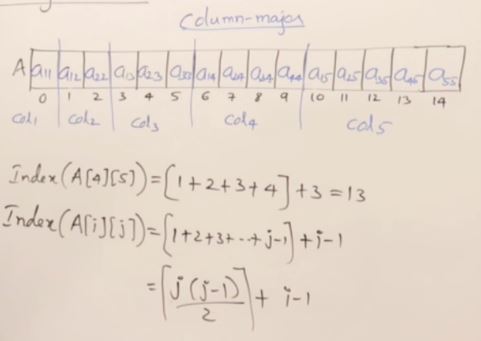 Column-major
A a11 a12 a22 a13 a23 a33 a14 a24 a34 a44 a15 a25 a35 a45 a55
0 1 2 3 4 5 6 7 8 9 10 11 12 13 14
Col1 Col2 Col3 Col4 Col5
Index(A[4][5])=[1+2+3+4]+3=13
Index(A[i][j])=[1+2+3+--+j-1]+i-1
=[j(j-1)/2]+i-1